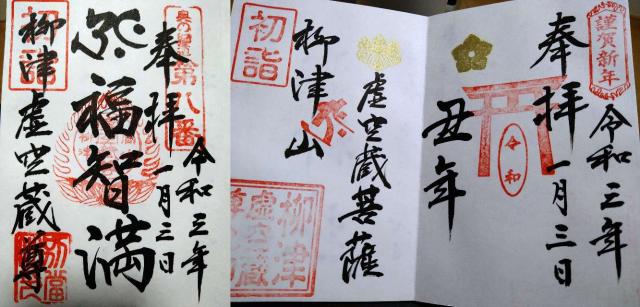 奥の細道
第八番
奉拝
令和三年
一月三日
福智満
初詣
柳津虚空蔵尊
別當
謹賀新年
奉拝
令和三年
一月三日
令和
丑年
虚空蔵菩薩
初詣
柳津山
柳津
虚空蔵
尊